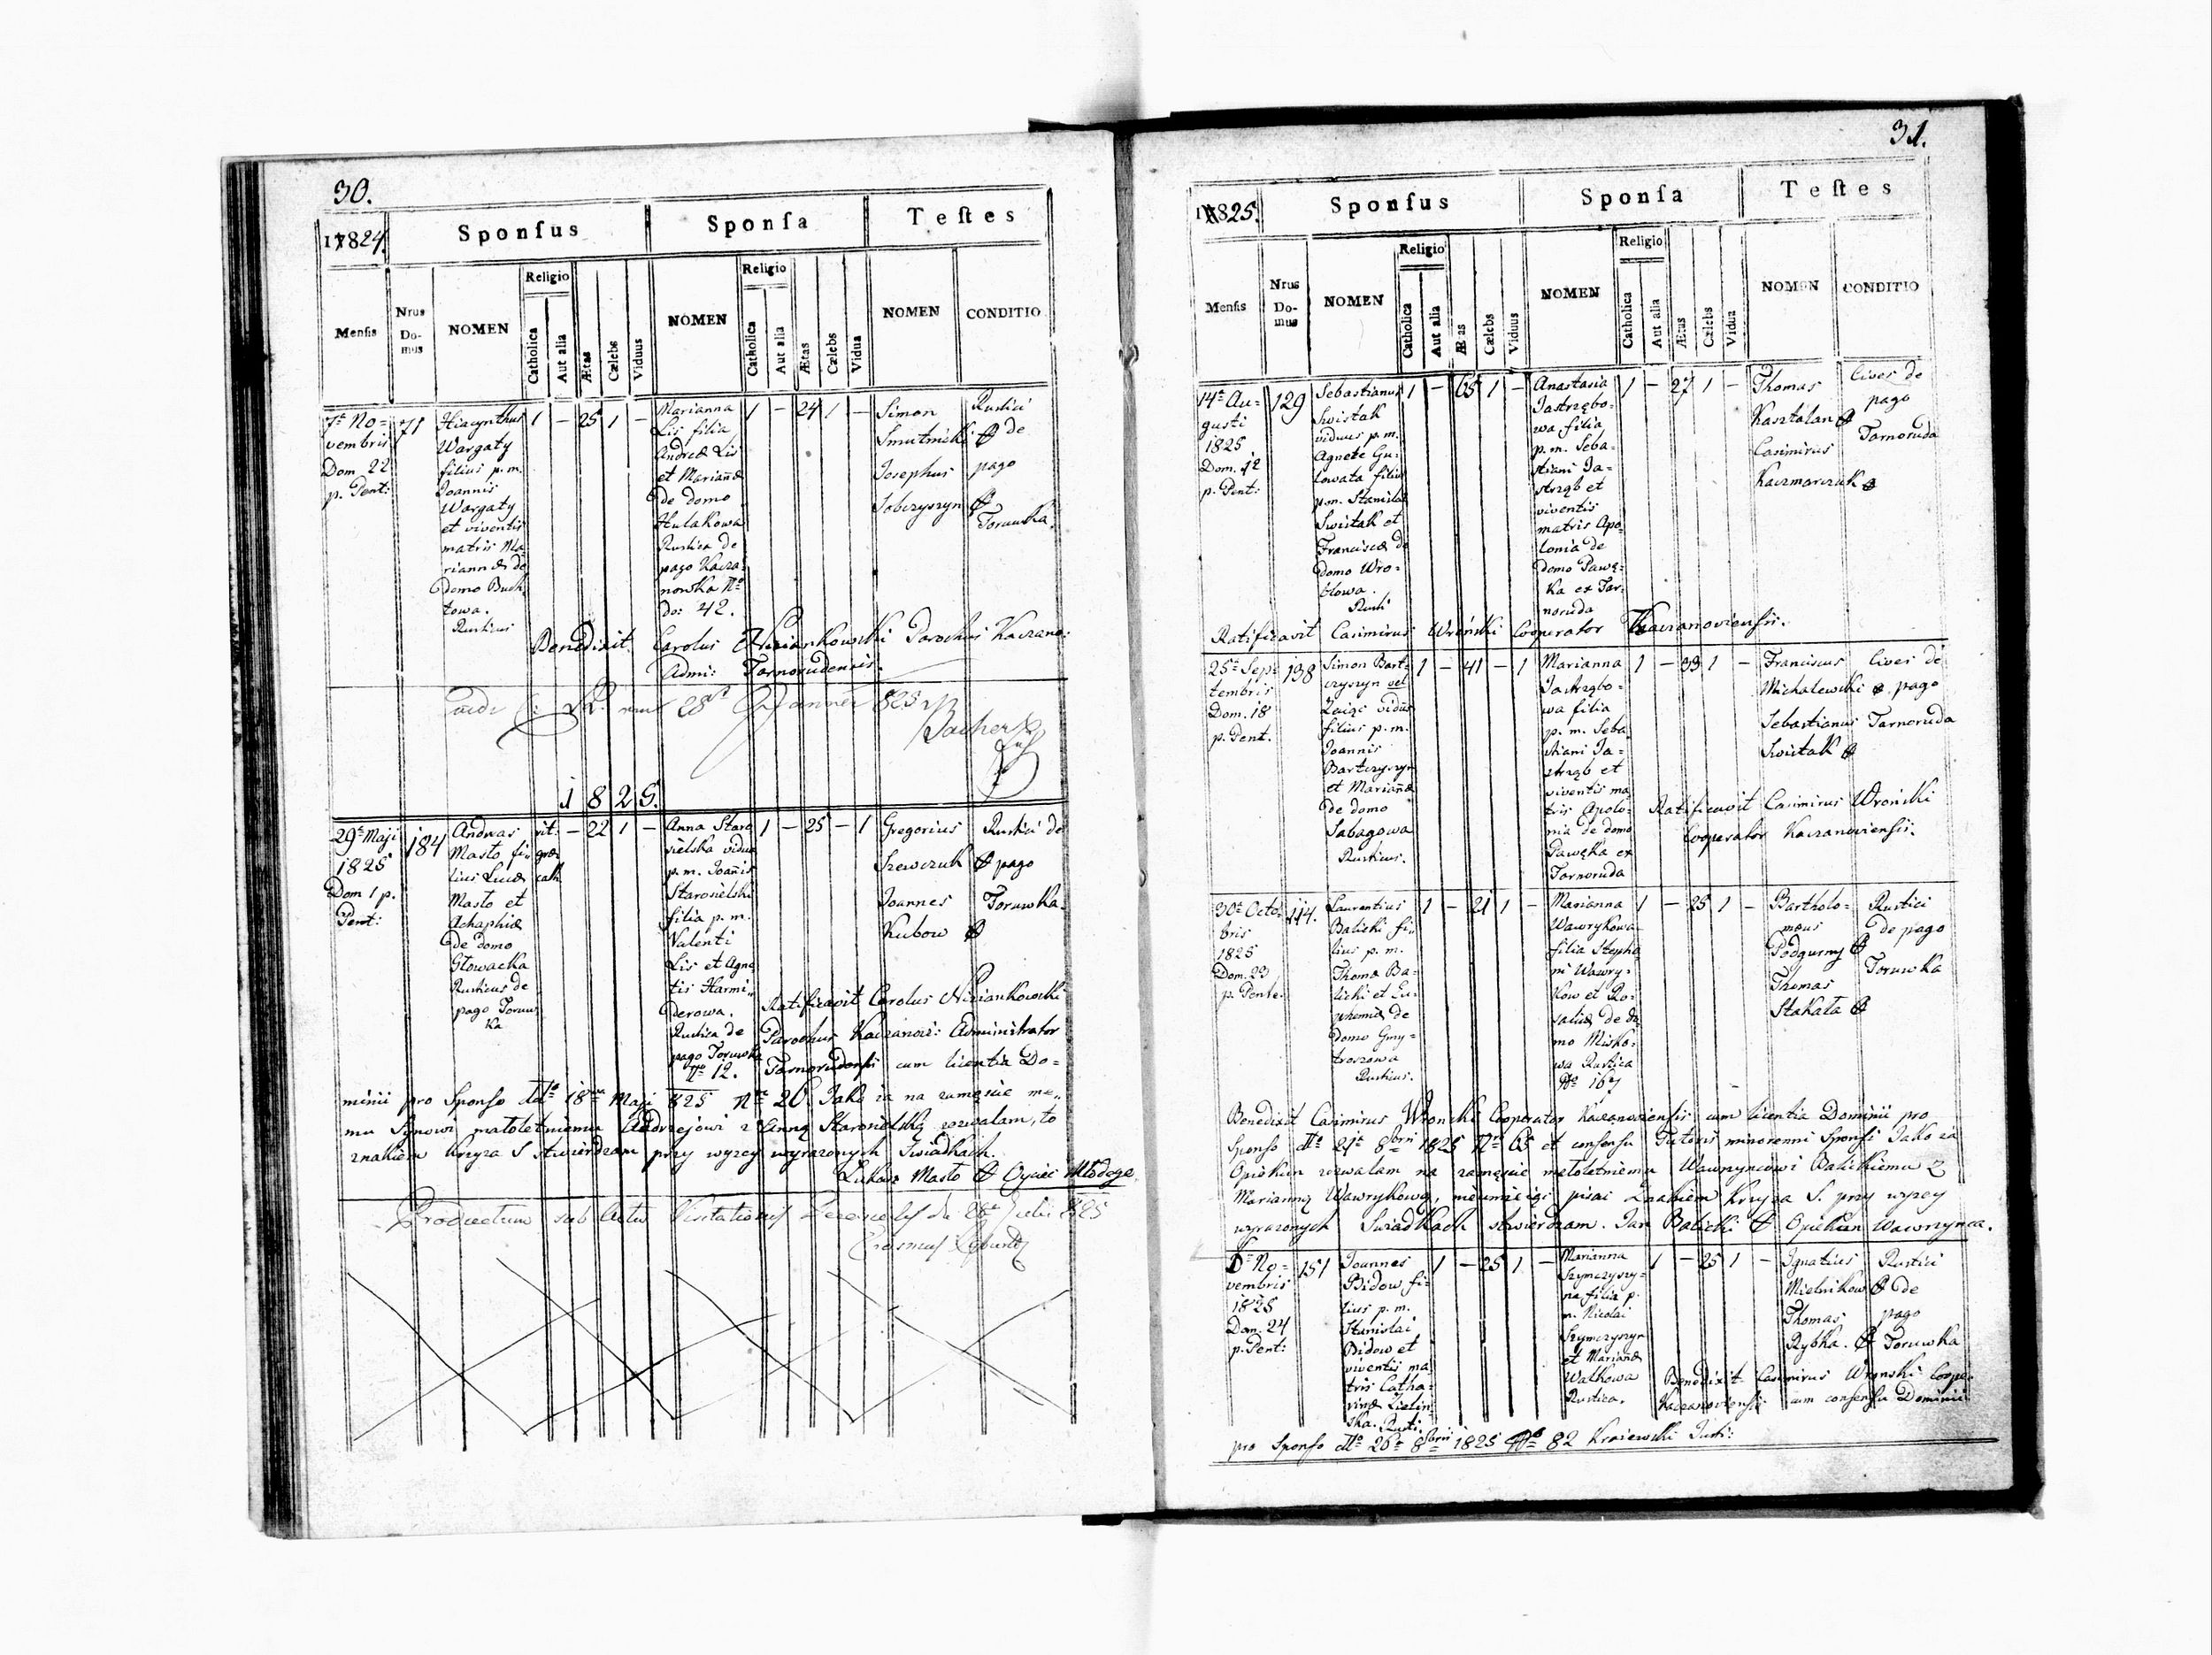 30.
17824.
Sponsus
Sponsa
Testes
Mensis
Nrus Do-mus
NOMEN
Religio
Catholica
Aut alia
Ætas
Cælebs
Viduus
NOMEN
Religio
Catholica
Aut alia
Ætas
Cælebs
Vidua
NOMEN
CONDITIO
7a No=
vembris
Dom. 22
p. Pent:
71
Hiacynthus
Wargaty
filius p. m.
Joannis
Wargaty
et viventis
matris Ma=
riannæ de
domo Buch
towa.
Rusticus
1 – 25 1 –
Marianna
Lis filia
Andreæ Lis
et Mariañæ
de domo
Hulakowa
Rustica de
pago Kacza=
nowka No
do: 42.
1 – 24 1 –
Simon
Smutnicki
Josephus
Sobczyszyn
Rustici
de
pago
Toruwka.
Benedixit Carolus Niziankowski Parochus Kaczano:
Admi: Tarnorudensis.
1825.
29a Maji
1825
Dom 1 p.
Pent:
184
Andreas
Masto fi=
lius Lucæ
Masto et
Achaphiæ
de domo
Glowacka
Rusticus de
pago Toruw
ka
rit:
græ
cath
– 22 1 –
Anna Staro
sielska vidua
p. m. Joañis
Starosielski
filia p. m.
Valenti
Lis et Agne
tis Harmi=
derowa.
Rustica de
pago Toruwka
No 12.
1 – 25 – 1
Gregorius
Szewczuk
Joannes
Kubow
Rustici de
pago
Toruwka.
Ratificavit Carolus Niziankowski
Parochus Kaczanov: Administrator
Tarnorudensis cum licentia Do=
minii pro Sponso ddto 18va Maji 825 Nro 26. Jako ia na zamęscie me=
mu Synowi małoletniemu Andrzejowi z Anną Starosielską zezwalam, to
znakiem krzyża S stwierdzam przy wyzey wyrażonych Swiadkach.
Łukasz Masto Oyciec Młodego
Productum sub Actu Visitationis Decanalis die 28a Julii 825
31.
17825.
Sponsus
Sponsa
Testes
Mensis
Nrus Do-mus
NOMEN
Religio
Catholica
Aut alia
Ætas
Cælebs
Viduus
NOMEN
Religio
Catholica
Aut alia
Ætas
Cælebs
Vidua
NOMEN
CONDITIO
14a Au=
gusti
1825
Dom. 12
p. Pent:
129
Sebastianus
Swistak
viduus p. m.
Agnete Gu=
lowata filius
p. m. Stanislai
Swistak et
Franciscæ de
domo Wro=
blowa.
Rusti
1 – 65 1 –
Anastasia
Jastrzębo=
wa filia
p. m. Seba=
stiani Ja=
strząb et
viventis
matris Apo=
lonia de
domo Pawę=
ka ex Tar=
noruda
1 – 27 1 –
Thomas
Kasztalan
Casimirus
Kaczmarczuk
Cives de
pago
Tarnoruda
Ratificavit Casimirus Wroński Cooperator Kaczanoviensis.
25a Sep=
tembris
Dom. 18
p. Pent.
138
Simon Bart=
czyszyn vel
Zaiąc viduus
filius p. m.
Joannis
Bartczyszyn
et Mariañæ
de domo
Sabagowa
Rusticus.
1 – 41 – 1
Marianna
Jastrzębo=
wa filia
p. m. Seba
stiani Ja=
strząb et
viventis ma
tris Apolo=
nia de domo
Pawęka ex
Tarnoruda
1 – 33 1 –
Franciscus
Michalewski
Sebastianus
Swistak
Cives de
pago
Tarnoruda
Ratificavit Casimirus Wroński
Cooperator Kaczanoviensis.
30a Octo=
bris
1825
Dom. 23
p. Pente.
114.
Laurentius
Balicki fi=
lius p. m.
Thoma Ba=
licki et Eu=
phemiæ de
domo Gmy=
troszowa
Rusticus.
1 – 21 1 –
Marianna
Wawrykowa
filia Stepha
ni Wawry=
kow et Ro=
saliæ de do
mo Misko=
wa Rustica
No 167
1 – 25 1 –
Bartholo=
mæus
Podgurny
Thomas
Stakata
Rustici
de pago
Toruwka
Benedixit Casimirus Wroński Cooperator Kaczanoviensis cum licentia Dominii pro
Sponso ddto 21a 8bris 1825 Nro 65 et consensu Tutoris minorenni Sponsi Jako ia
Opiekun zezwalam na zamęscie małoletniemu Wawrzyncowi Balickiemu z
Marianną Wawrykową, nieumieiąc pisać Znakiem krzyża S. przy wyzey
wyrażonych Swiadkach stwierdzam. Jan Balicki Opiekun Wawrzynca.
No=
vembris
1825
Dom. 24
p. Pent:
151
Joannes
Bidow fi=
lius p. m.
Stanislai
Bidow et
viventis ma
tris Catha=
rinæ Zielin
ska. Rusti.
1 – 25 1 –
Marianna
Szymczyszy=
na filia p.
m. Nicolai
Szymczyszyn
et Mariañæ
Walkowa
Rustica.
1 – 25 1 –
Ignatius
Mielnikow
Thomas
Rybka.
Rustici
de
pago
Toruwka
Benedixit Casimirus Wronski Coope.
Kaczanoviensis cum consensu Dominii
pro Sponso ddto 26a 8bris 1825 No 82 Kraiewski Justi: